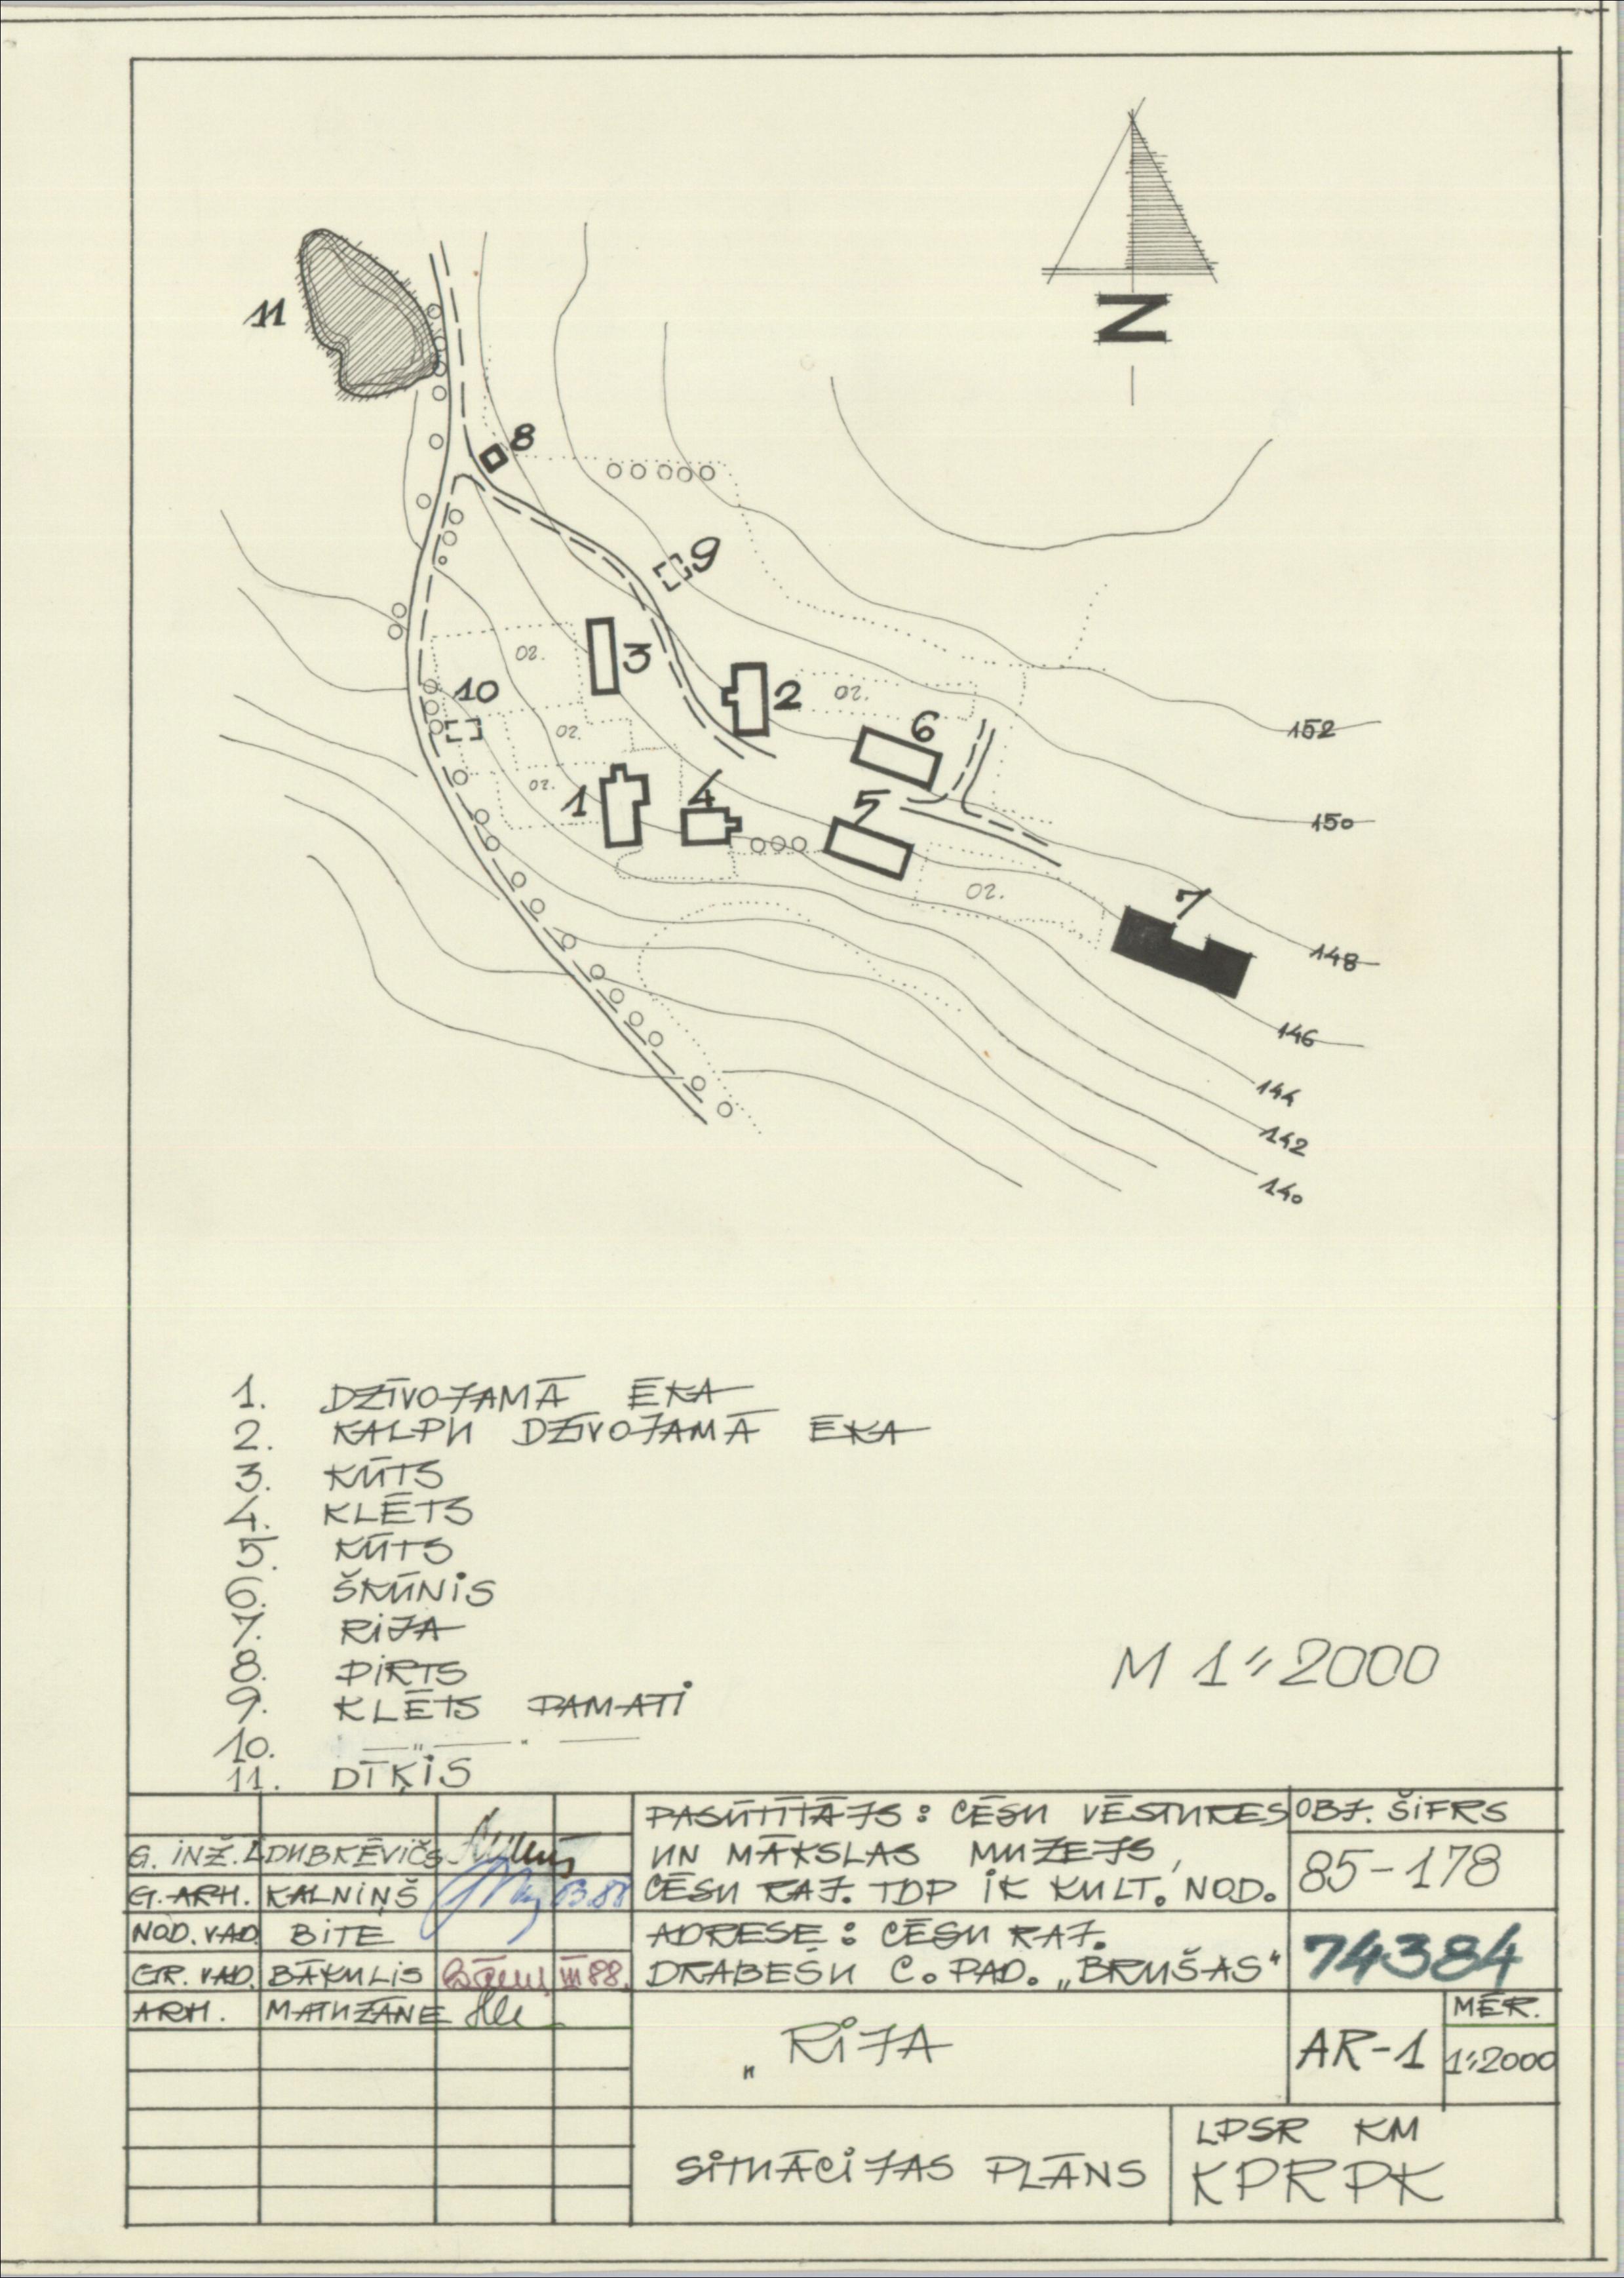 N
11
8
9
3
10
oz.
2
oz.
6
oz.
oz.
1
4
5
oz.
7
152
150
148
146
144
142
140
1. DZĪVOJAMĀ ĒKA
2. KALPU DZĪVOJAMĀ ĒKA
3. KŪTS
4. KLĒTS
5. KŪTS
6. ŠKŪNIS
7. RIJA
8. PIRTS
9. KLĒTS PAMATI
10. — " — " —
11. DĪĶIS
M 1:2000
G. INŽ. DUBKĒVIČS
G. ARH. KALNIŅŠ 03.88
NOD. VAD. BITE
GR. VAD. BĀKULIS III 88.
ARH. MATUZĀNE
PASŪTĪTĀJS: CĒSU VĒSTURES
UN MĀKSLAS MUZEJS,
CĒSU RAJ. TDP IK KULT. NOD.
OBJ. ŠIFRS
85-178
ADRESE: CĒSU RAJ.
DRABEŠU C. PAD. „BRUŠAS“
74384
„ RIJA
AR-1
MĒR.
1:2000
SITUĀCIJAS PLĀNS
LPSR KM
KPRPK